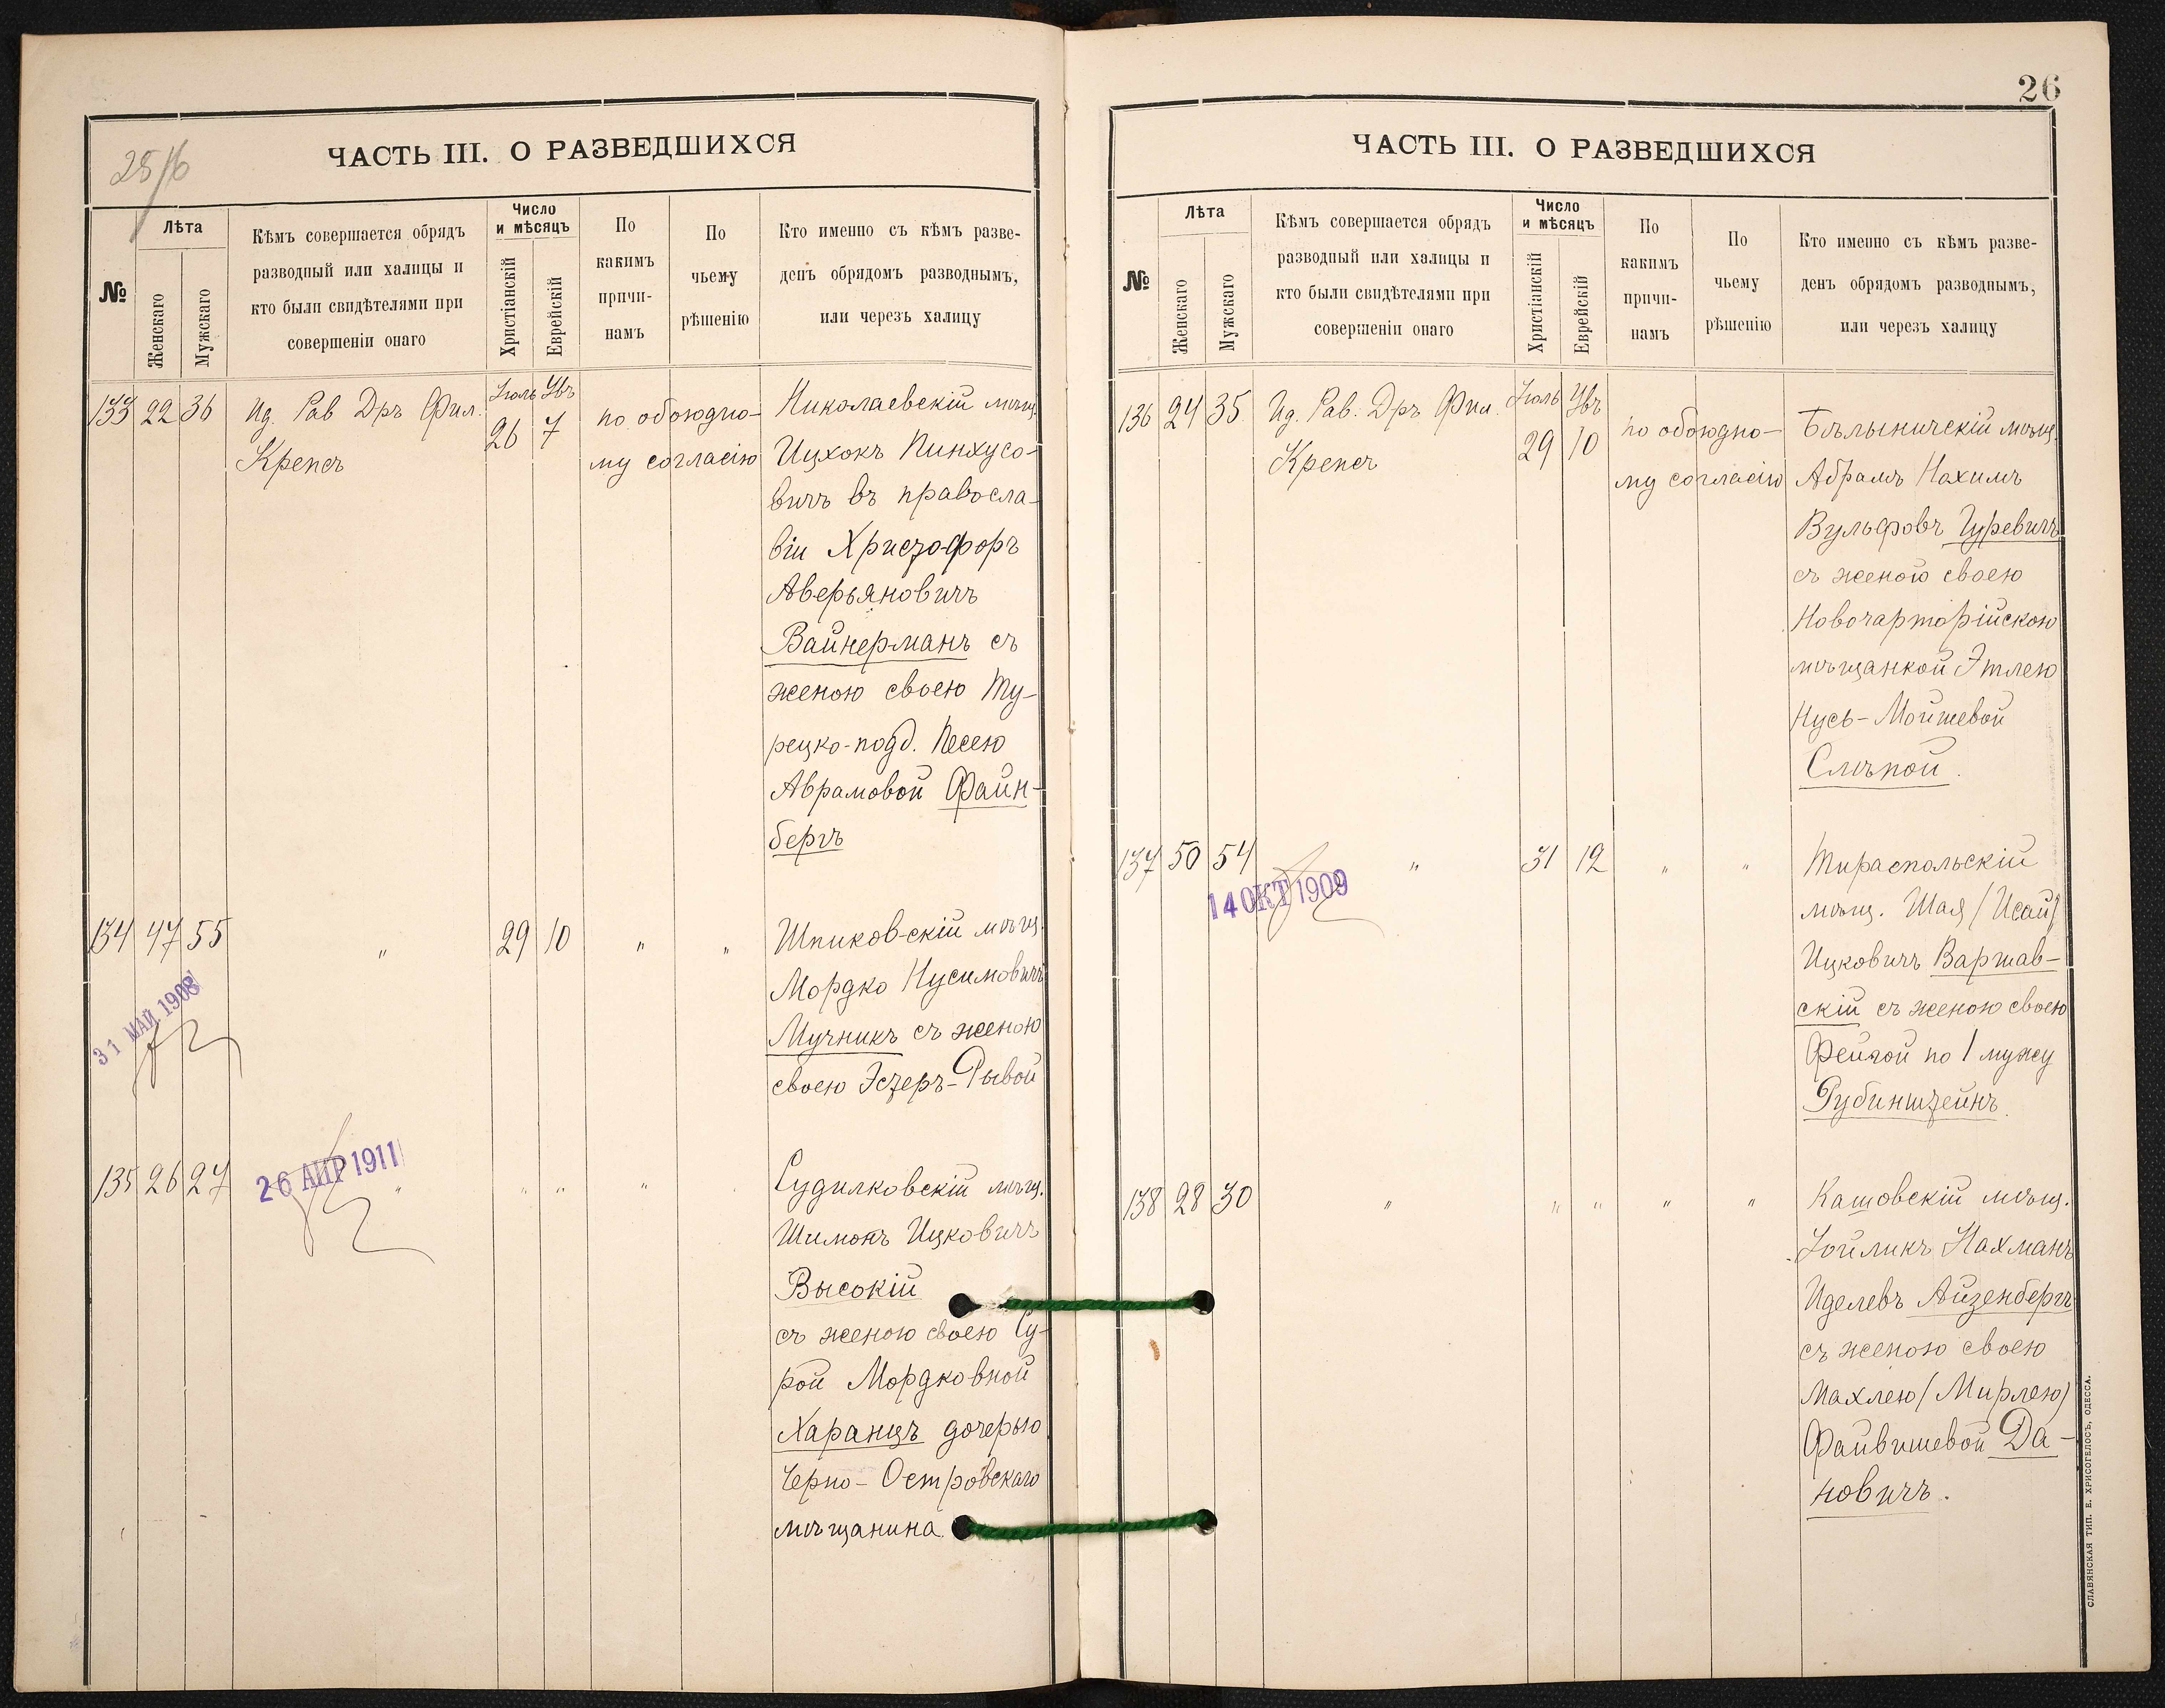 25/б
ЧАСТЬ III. О РАЗВЕДШИХСЯ
№
Лѣта
Женскаго
Мужскаго
Кѣмъ совершается обрядъ
разводный или халицы и
кто были свидѣтелями при
совершеніи онаго
Число
и мѣсяцъ
Христіанскій
Еврейскій
По
какимъ
причи-
намъ
По
чьему
рѣшенію
Кто именно съ кѣмъ разве-
денъ обрядомъ разводнымъ,
или черезъ халицу
133 22 36 Ид. Рав Дръ Фил.
Крепсъ
Іюль
26 7
по обоюдно-
му согласію
Николаевскій мѣщ.
Ицхокъ Пинхусо-
вичъ въ правосла-
віи Христофоръ
Аверьяновичъ
Вайнерманъ съ
женою своею Ту-
рецко-подд. Песею
Аврамовой Файн-
бергъ
134 47 55 " 29 10 " "
31 МАЙ 1908
Шпиковскій мѣщ.
Мордко Нусимовичъ
Мучникъ съ женою
своею Эстеръ-Рывой
135 26 27 " " " "
26 АПР 1911
Судилковскій мѣщ.
Шимонъ Ицковичъ
Высокій
съ женою своею Су-
рой Мордковной
Харанцъ дочерью
Черно-Островскаго
мѣщанина
26
ЧАСТЬ III. О РАЗВЕДШИХСЯ
№
Лѣта
Женскаго
Мужскаго
Кѣмъ совершается обрядъ
разводный или халицы и
кто были свидѣтелями при
совершеніи онаго
Число
и мѣсяцъ
Христіанскій
Еврейскій
По
какимъ
причи-
намъ
По
чьему
рѣшенію
Кто именно съ кѣмъ разве-
денъ обрядомъ разводнымъ,
или черезъ халицу
136 24 35 Ид. Рав. Дръ Фил.
Крепсъ
Іюль
29 10
по обоюдно-
му согласію
Бѣлыничскій мѣщ.
Абрамъ Нахимъ
Вульфовъ Гуревичъ
съ женою своею
Новочарторійскою
мѣщанкой Этлею
Нусь-Мойшевой
Смѣпой.
137 50 54 " 31 12 " "
14 ОКТ 1909
Тираспольскій
мѣщ. Шая (Исай)
Ицковичъ Варшав-
скій съ женою своею
Фейгой по 1 мужу
Рубинштейнъ.
138 28 30 " " " " "
Кашовскій мѣщ.
Іойликъ Нахманъ
Иделевъ Айзенбергъ
съ женою своею
Махлею (Мирлею)
Файвишевой Да-
новичъ.
СЛАВЯНСКАЯ ТИП. Е. ХРИСОГЕЛОСЪ, ОДЕССА.